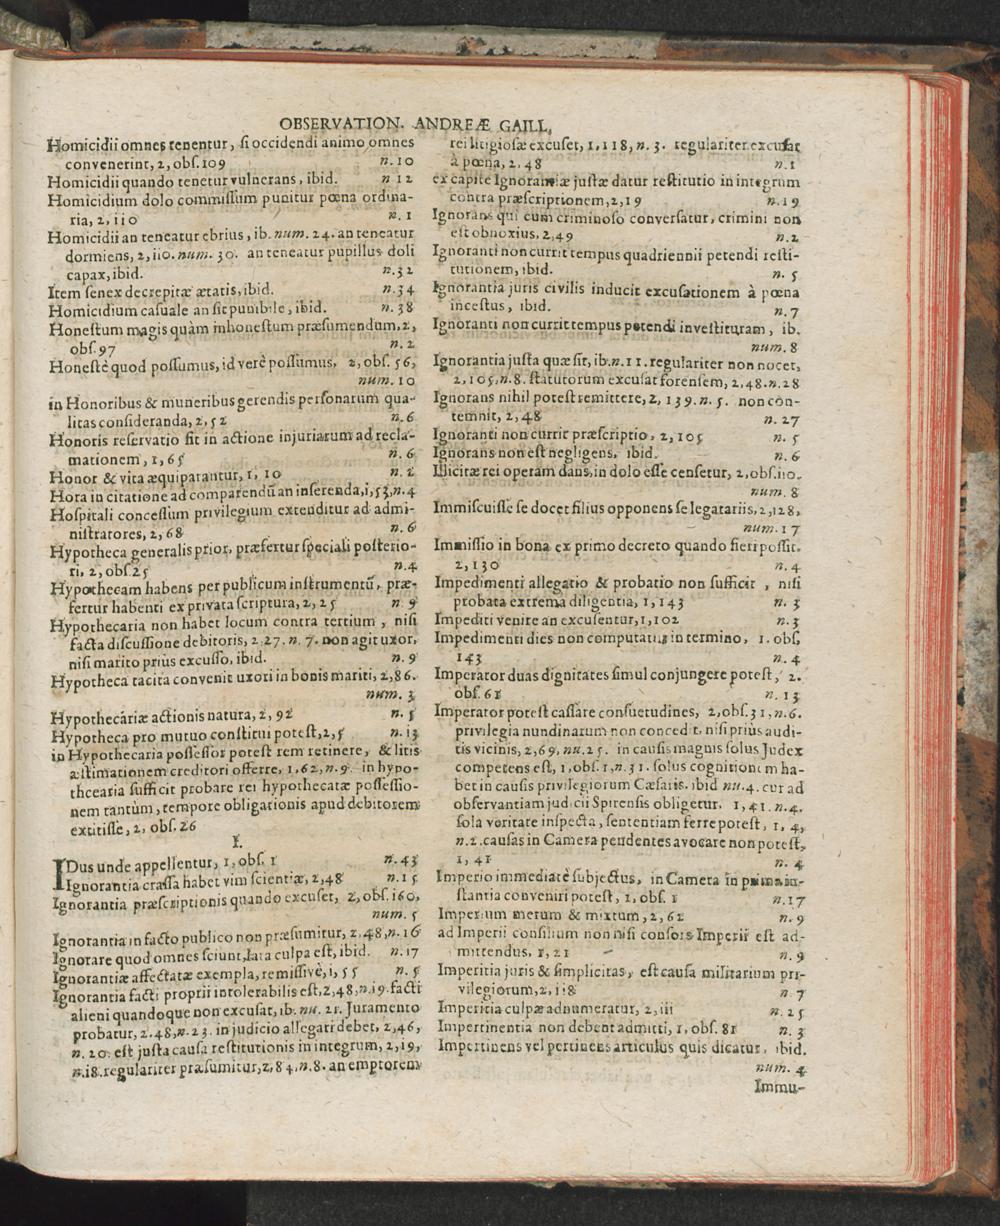 OBSERVATION. ANDREÆ GAILL,
Homicidii omnes tenentur, ſi occidendi animo omnes
convenerint, 2, obſ. 109 n. 10
Homicidii quando tenetur vulnerans, ibid. n 12
Homicidium dolo commiſſum punitur pœna ordina-
ria, 2, 110 n. 1
Homicidii an teneatur ebrius, ib. num. 24. an teneatur
dormiens, 2, 110. num. 30. an teneatur pupillus doli
capax, ibid. n. 32
Item ſenex decrepitæ ætatis, ibid. n. 34
Homicidium caſuale an ſit punibile, ibid. n. 38
Honeſtum magis quàm inhoneſtum præſumendum, 2,
obſ. 97 n. 2
Honeſtè quod poſſumus, id verè poſſumus, 2, obſ. 56,
num. 10
in Honoribus & muneribus gerendis perſonarum qua-
litas conſideranda, 2, 52 n. 6
Honoris reſervatio fit in actione injuriarum ad recla-
mationem, 1, 65 n. 6
Honor & vita æquiparantur, 1, 10 n. 2
Hora in citatione ad comparendũ an inferenda, 1, 53, n. 4
Hoſpitali conceſſum privilegium extenditur ad admi-
niſtratores, 2, 68 n. 6
Hypotheca generalis prior, præfertur ſpeciali poſterio-
ri, 2, obſ. 25 n. 4
Hypothecam habens per publicum inſtrumentũ, præ-
fertur habenti ex privata ſcriptura, 2, 25 n 9
Hypothecaria non habet locum contra tertium, niſi
facta diſcuſſione debitoris, 2. 27. n. 7. non agit uxor,
niſi marito priùs excuſſo, ibid. n. 9
Hypotheca tacita convenit uxori in bonis mariti, 2, 86.
num. 3
Hypothecariæ actionis natura, 2, 92 n. 5
Hypotheca pro mutuo conſtitui poteſt, 2, 5 n. 13
in Hypothecaria poſſeſſor poteſt rem retinere, & litis
æſtimationem creditori offerre, 1, 62, n. 9. in hypo-
thecaria ſufficit probare rei hypothecatæ poſſeſſio-
nem tantùm, tempore obligationis apud debitorem
extitiſſe, 2, obſ. 26
I.
IDus unde appellentur, 1, obſ. 1 n. 43
Ignorantia craſſa habet vim ſcientiæ, 2, 48 n. 15
Ignorantia præſcriptionis quando excuſet, 2, obſ. 160,
num. 5
Ignorantia in facto publico non præſumitur, 2, 48, n. 16
Ignorare quod omnes ſciunt, lata culpa eſt, ibid. n. 17
Ignorantiæ affectatæ exempla, remiſſivè, 1, 55 n. 5
Ignorantia facti proprii intolerabilis eſt, 2, 48, n. 19. facti
alieni quandoque non excuſat, ib. nu. 21. Juramento
probatur, 2. 48, n. 23. in judicio allegari debet, 2, 46,
n. 20. eſt juſta cauſa reſtitutionis in integrum, 2, 19,
n. 18. regulariter præſumitur, 2, 84, n. 8. an emptorem
rei litigioſæ excuſet, 1, 118, n. 3. regulariter excuſat
à pœna, 2, 48 n. 1
ex capite Ignorantiæ juſtæ datur reſtitutio in integrum
contra præſcriptionem, 2, 19 n. 19
Ignorans qui cum criminoſo converſatur, crimini non
eſt obnoxius, 2, 49 n. 2
Ignoranti non currit tempus quadriennii petendi reſti-
tutionem, ibid. n. 5
Ignorantia juris civilis inducit excuſationem à pœna
inceſtus, ibid. n. 7
Ignoranti non currit tempus petendi inveſtituram, ib.
num. 8
Ignorantia juſta quæ ſit, ib. n. 11. regulariter non nocet,
2, 105, n. 8. ſtatutorum excuſat forenſem, 2, 48. n. 28
Ignorans nihil poteſt remittere, 2, 139. n. 5. non con-
temnit, 2, 48 n. 27
Ignoranti non currit præſcriptio, 2, 105 n. 5
Ignorans non eſt negligens, ibid. n. 6
Illicitæ rei operam dans, in dolo eſſe cenſetur, 2, obſ. 110.
num. 8
Immiſcuiſſe ſe docet filius opponens ſe legatariis, 2, 128,
num. 17
Immiſſio in bona ex primo decreto quando fieri poſſit.
2, 130 n. 4
Impedimenti allegatio & probatio non ſufficit, niſi
probata extrema diligentia, 1, 143 n. 3
Impediti venire an excuſentur, 1, 102 n. 3
Impedimenti dies non computatur in termino, 1. obſ.
143 n. 4
Imperator duas dignitates ſimul conjungere poteſt, 2.
obſ. 61 n. 13
Imperator poteſt caſſare conſuetudines, 2, obſ. 31, n. 6.
privilegia nundinarum non conced t, niſi priùs audi-
tis vicinis, 2, 69, nu. 25. in cauſis magnis ſolus Judex
competens eſt, 1, obſ. 1, n. 31. ſolus cognitionem ha-
bet in cauſis privilegiorum Cæſaris. ibid nu. 4. cur ad
obſervantiam judicii Spirenſis obligetur. 1, 41. n. 4.
ſola veritate inſpecta, ſententiam ferre poteſt, 1, 4,
n. 2. cauſas in Camera pendentes avocare non poteſt,
1, 41 n. 4
Imperio immediatè ſubjectus, in Camera in prima in-
ſtantia conveniri poteſt, 1, obſ. 1 n. 17
Imperium merum & mixtum, 2, 62 n. 9
ad Imperii conſilium non niſi conſors Imperii eſt ad-
mittendus, 1, 21 n. 9
Imperitia juris & ſimplicitas, eſt cauſa militarium pri-
vilegiorum, 2, 118 n 7
Imperitia culpæ adnumeratur, 2, 111 n. 25
Impertinentia non debent admitti, 1, obſ. 81 n. 3
Impertinens vel pertinens articulus quis dicatur, ibid.
num. 4
Immu-